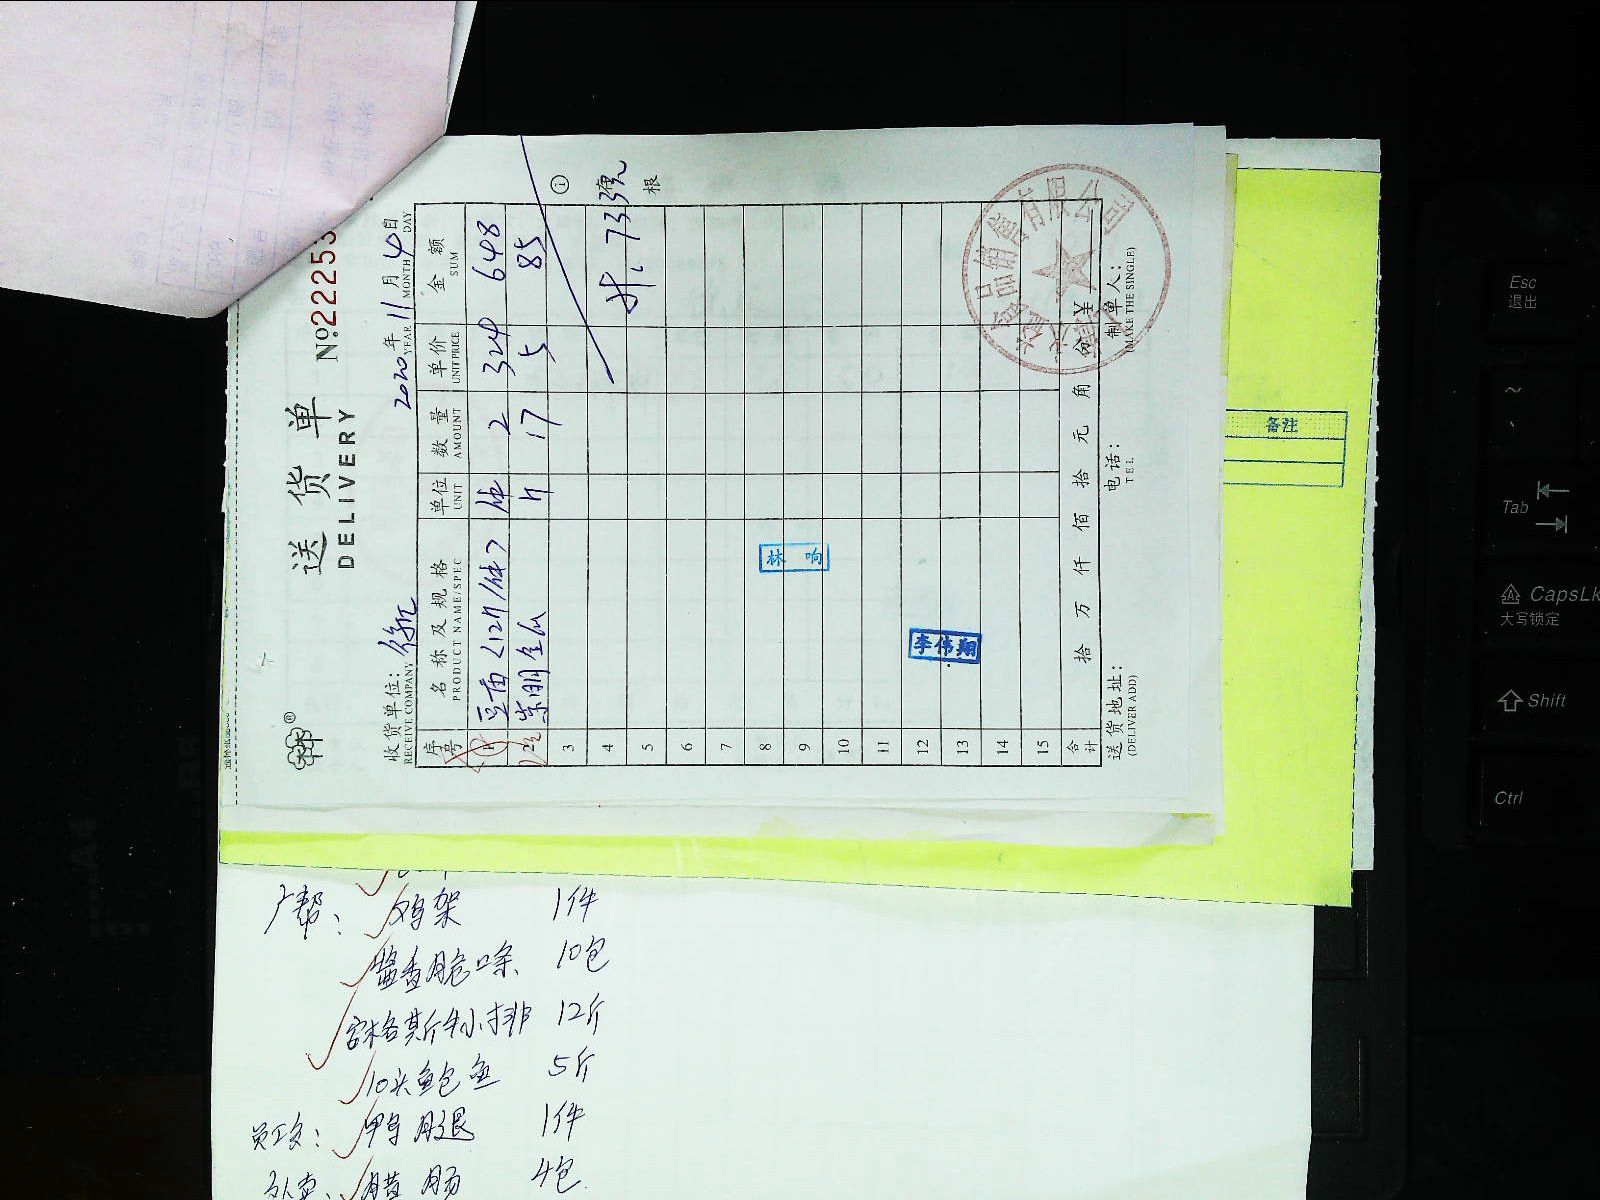 送货单
DELIVERY
№22253
收货单位: 徐汇 2020年11月4日
RECEIVE COMPANY YEAR MONTH DAY
序号 名称及规格 单位 数量 单价 金额
PRODUCT NAME/SPEC UNIT AMOUNT UNIT PRICE SUM
1 豆苗<12斤/件> 件 2 324 648
2 崇明金瓜 斤 17 5 85
3
4
5
6
7
8
9
10
11
12
13
14
15
共: 733元
① 根
林响
李伟翔
合计 拾 万 仟 佰 拾 元 角 分 ¥
送货地址: 电话: 制单人:
(DELIVER ADD) TEL (MAKE THE SINGLE)
食品销售有限公司
备注
广帮: 鸡架 1件
酱香脆 10包
安格斯牛小排 12斤
10头鲍鱼 5斤
员工: 鸭腿 1件
外卖: 腊肠 4包
Esc
退出
~
Tab
CapsLk
大写锁定
Shift
Ctrl